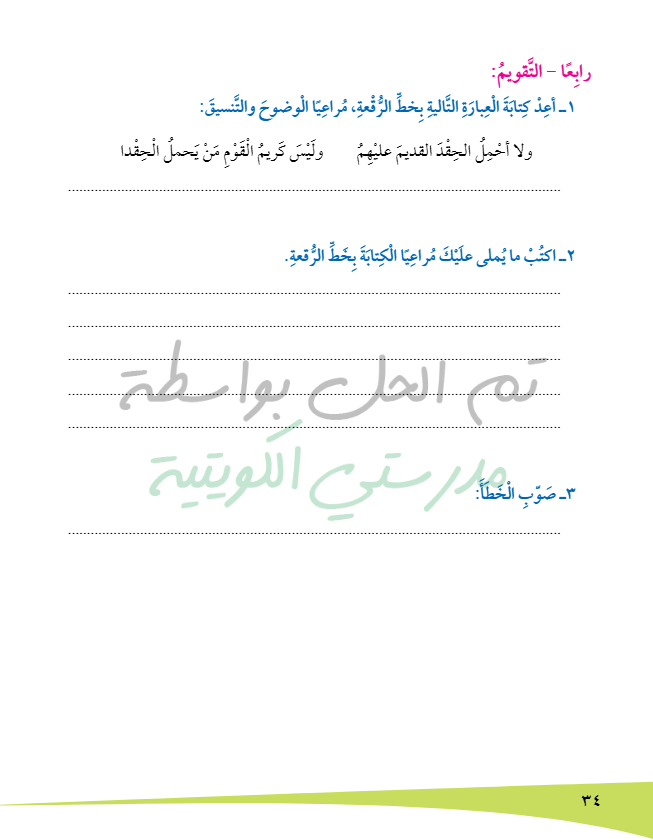 رابِعًا – التَّقويمُ:
١ـ أعِدْ كِتابَةَ الْعِبارَةِ التَّاليةِ بِخطِّ الرُّقْعةِ، مُراعِيًا الْوضوحَ والتَّنسيقَ:
ولا أحْمِلُ الحِقْدَ القديمَ عليْهِمُ ولَيْسَ كَريمُ الْقَوْمِ مَنْ يَحملُ الْحِقْدا
٢ـ اكتُبْ ما يُملى علَيْكَ مُراعِيًا الْكِتابَةَ بِخَطِّ الرُّقعةِ.
تم الحل بواسطة
مدرستي الكويتية
٣ـ صَوّبِ الْخَطَأَ:
٣٤